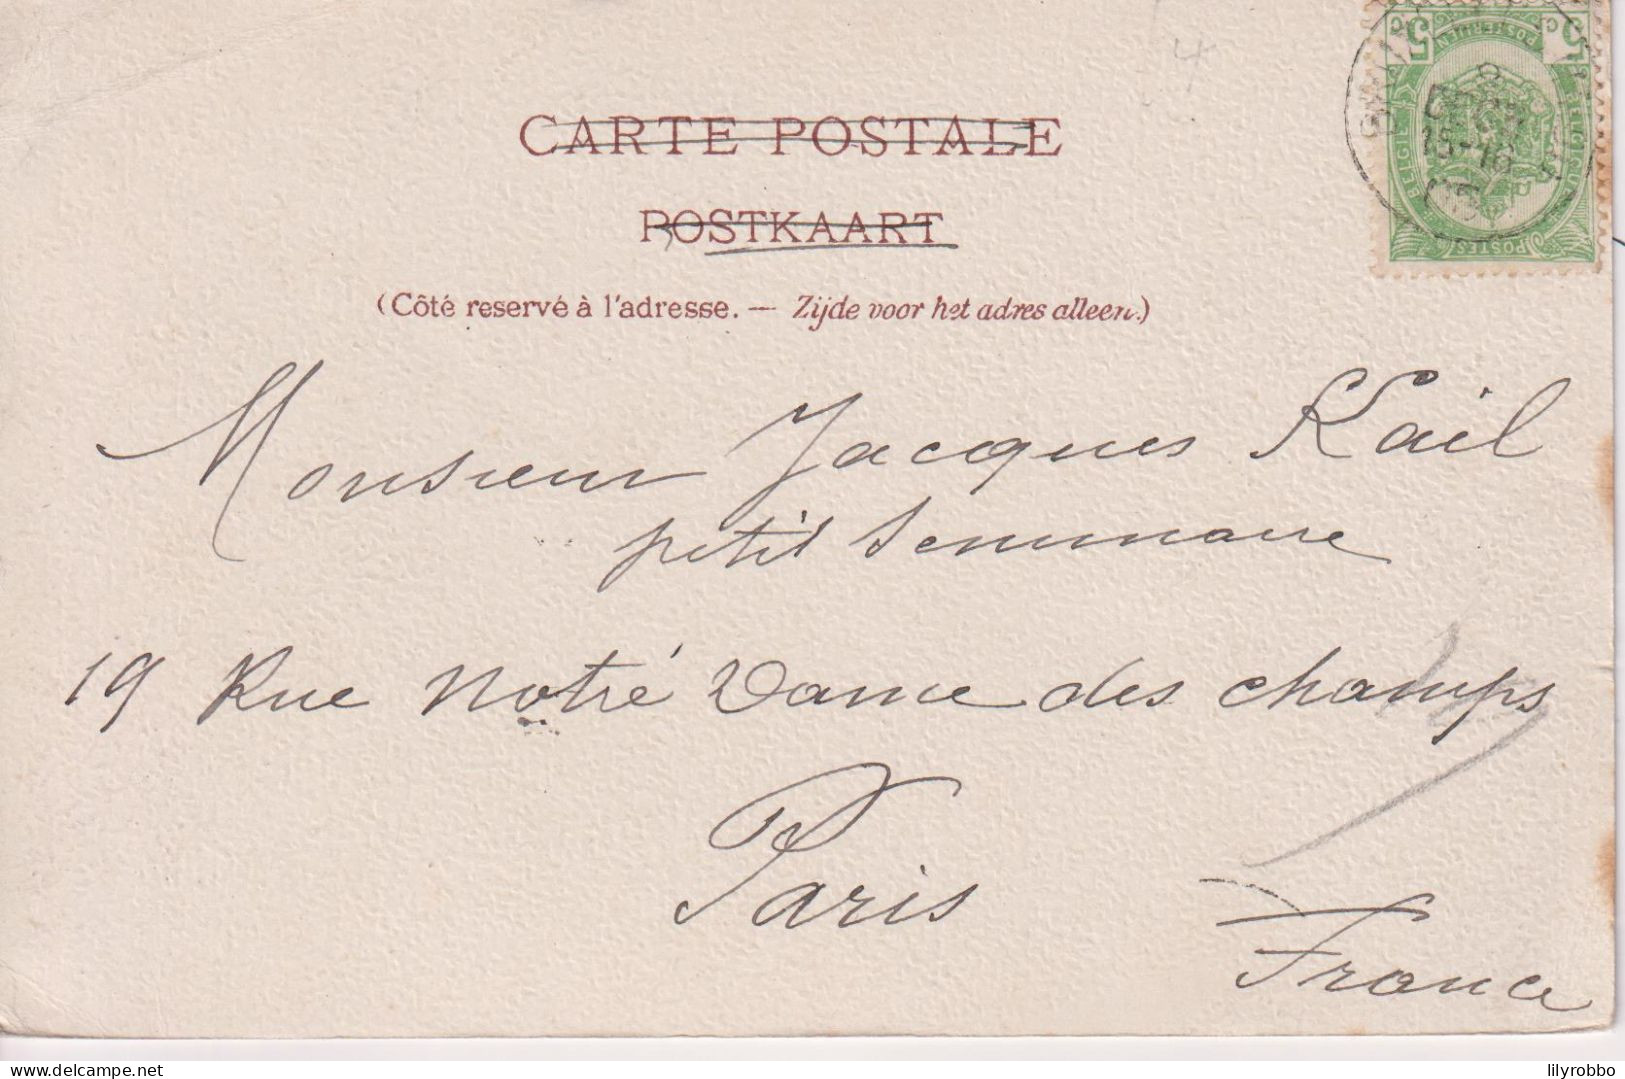 CARTE POSTALE
POSTKAART
(Côté reservé à l'adresse. — Zijde voor het adres alleen.)
Monsieur Jacques Kail
petit Seminaire
19 Rue Notré Dame des champs
Paris
France
5 c
5 c
15-16
delcampe.net
lilyrobbo